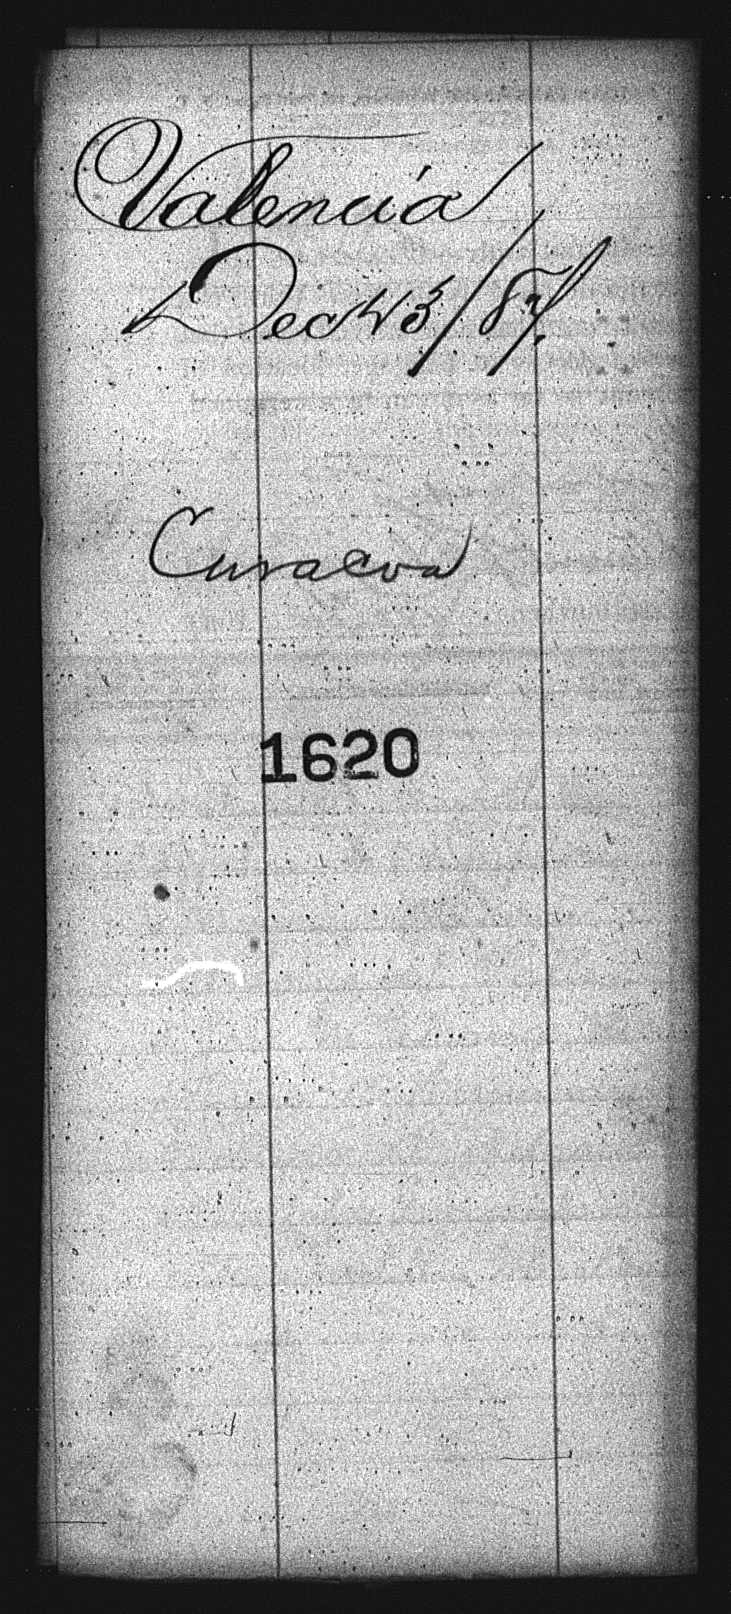 Valencia
Dec 23/87.
Curacoa
1620